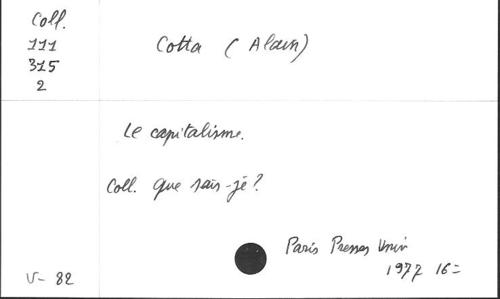 Coll.
111
315
2
Cotta (Alain)
Le capitalisme.
Coll. que sais-je?
Paris Presses Univ
1977 16=
V- 82